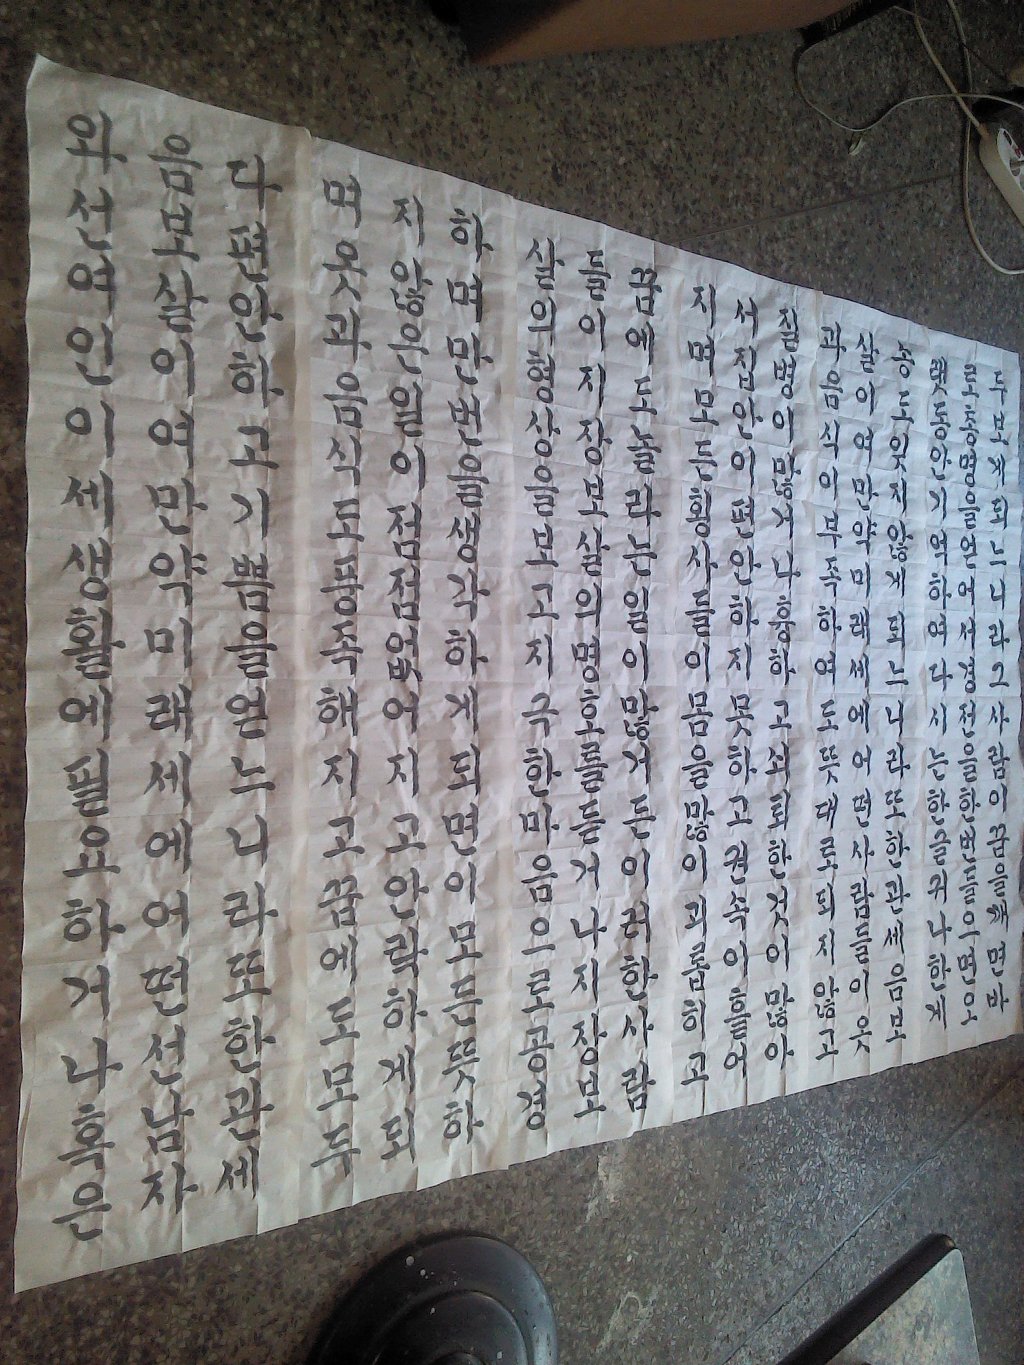 두보게되느니라그사람이꿈을깨면마
로총명을얻어서경전을한번들으면오
래동안기억하여다시는한글귀나한게
송도잊지않게되느니라또한관세음보
살이여만약미래세에어떤사람들이옷
과음식이부족하여도뜻대로되지않고
질병이많거나흉하고쇠퇴한것이많아
서집안이편안하지못하고권속이흩어
지며모든횡사들이몸을많이괴롭히고
꿈에도놀라는일이많거든이러한사람
들이지장보살의명호를듣거나지장보
살의형상을보고지극한마음으로공경
하며만번을생각하게되면이모든뜻하
지않은일이점점없어지고안락하게되
며옷과음식도풍족해지고꿈에도모두
다편안하고기쁨을얻느니라또한관세
음보살이여만약미래세에어떤선남자
와선여인이세생활에필요하거나혹은